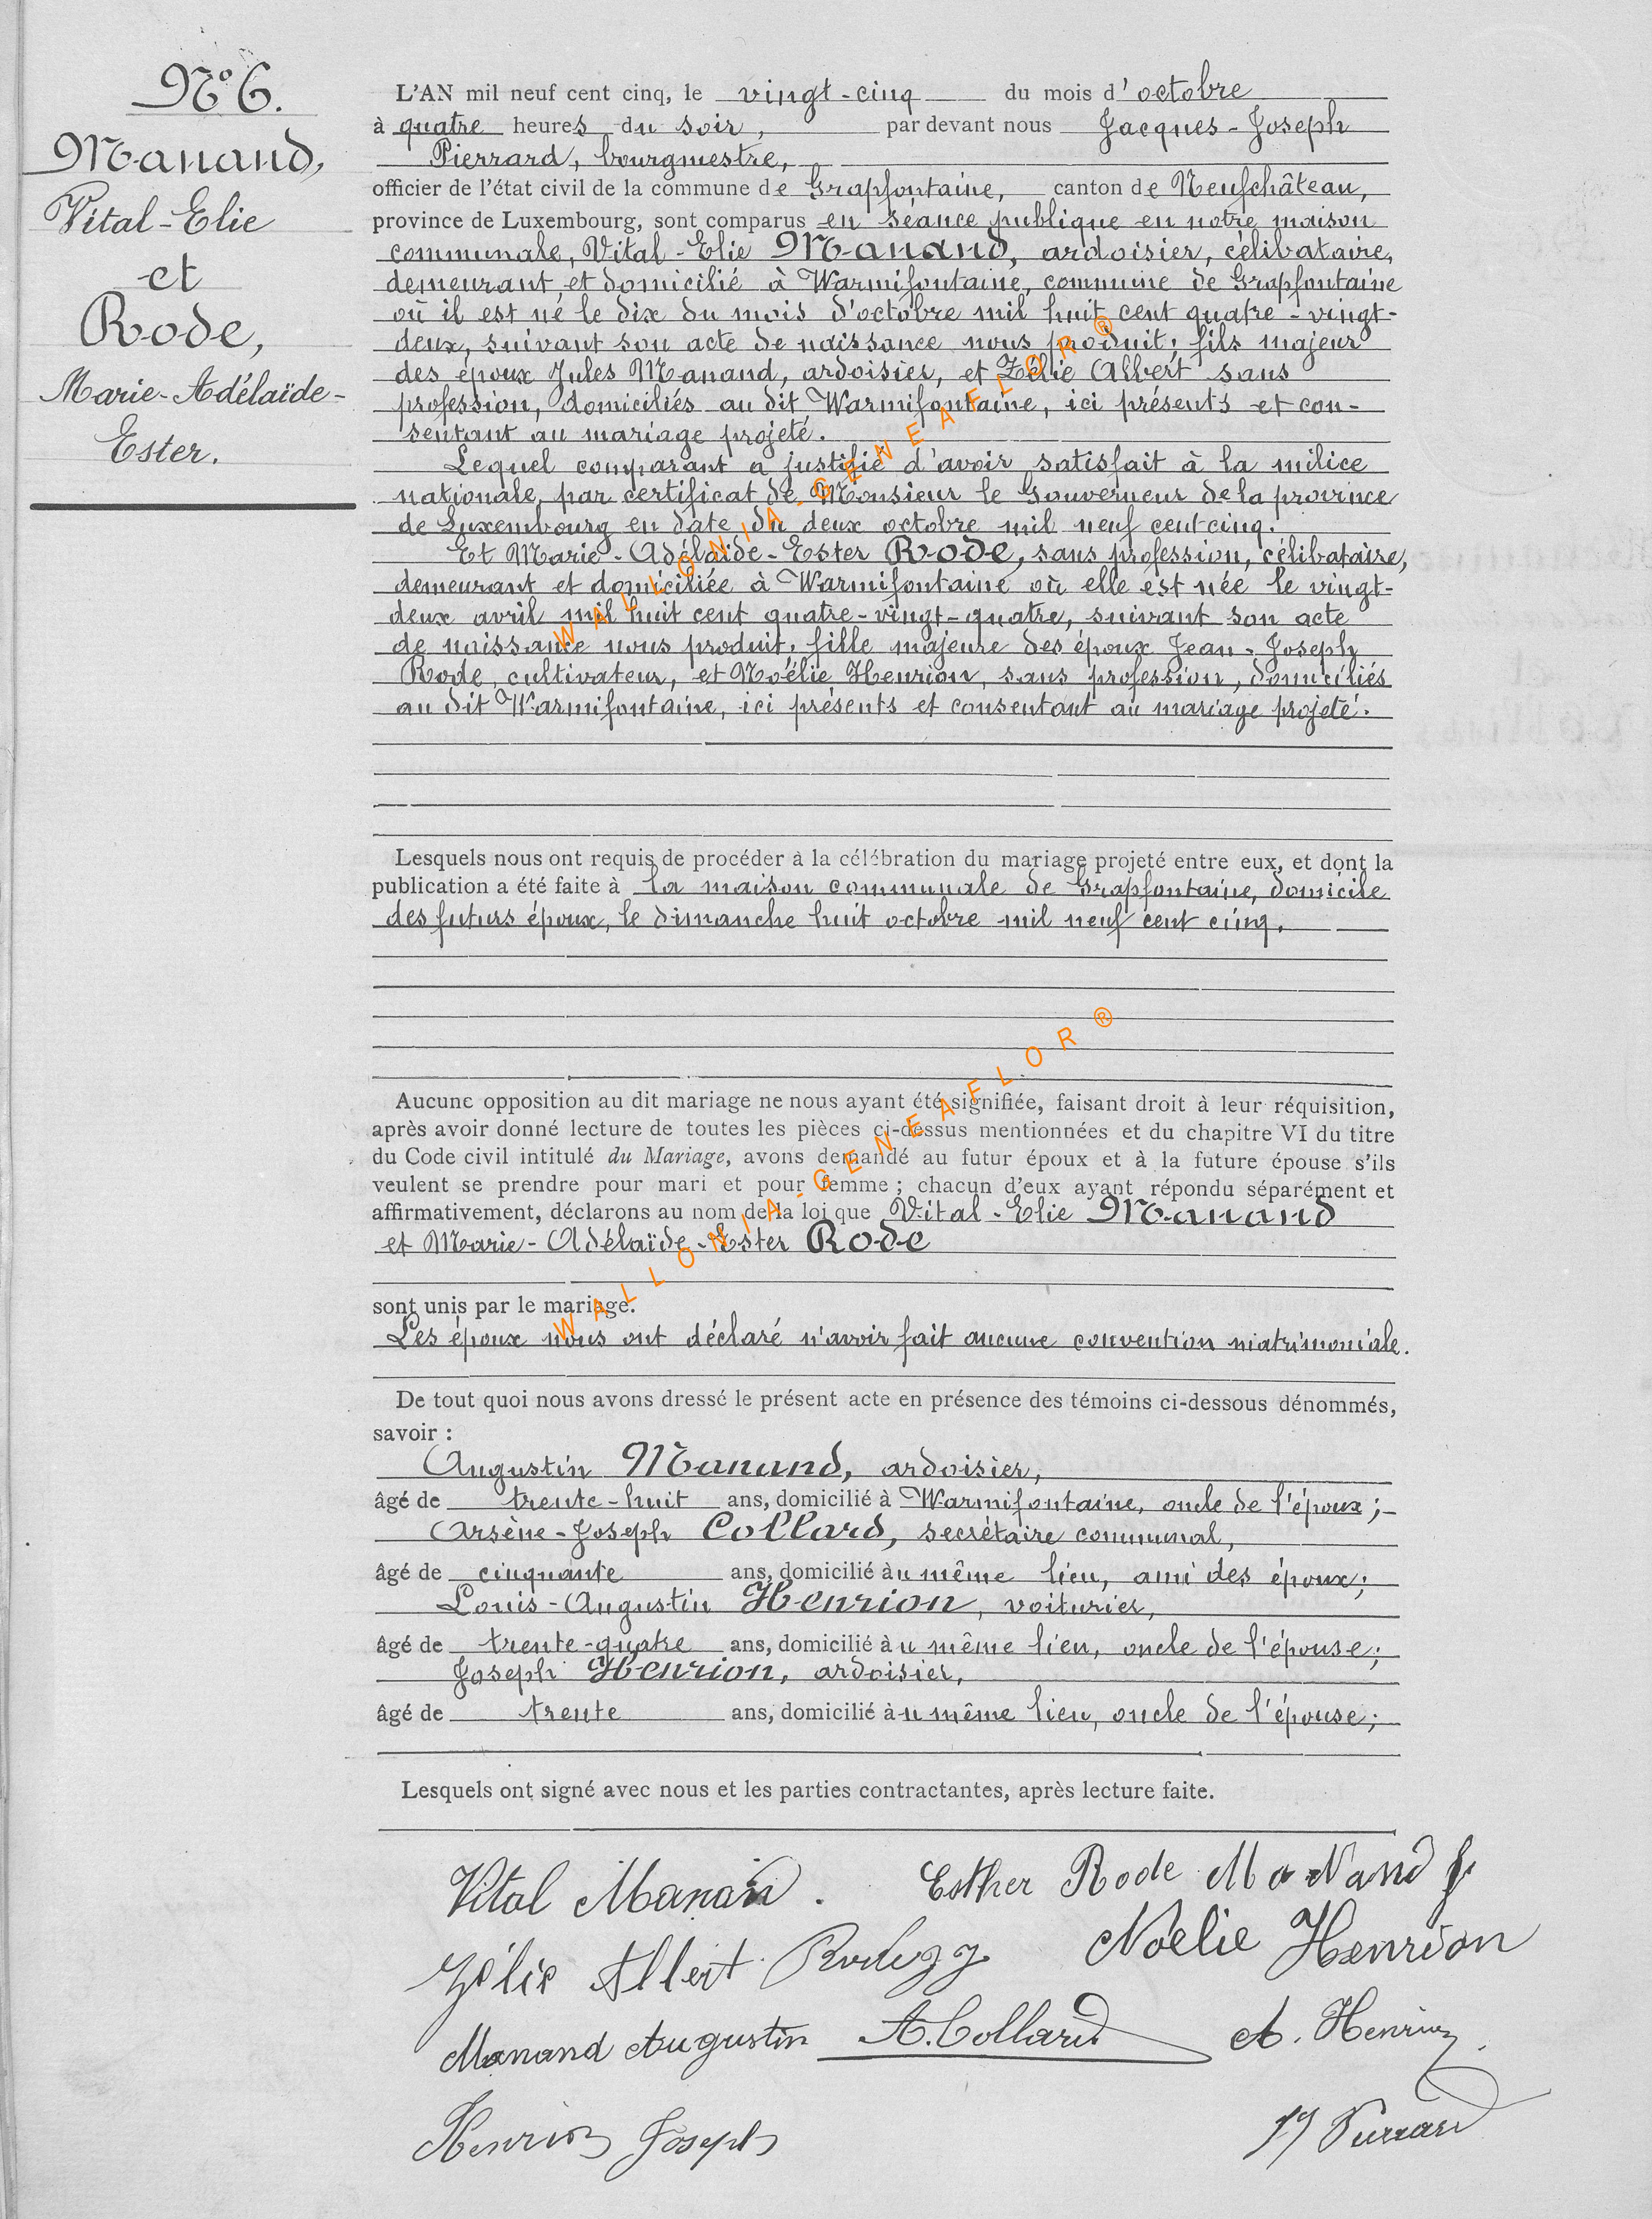 N° 6.
Manand,
Vital-Elie
et
Rode,
Marie-Adélaïde-
Ester.
L'AN mil neuf cent cinq, le vingt-cinq du mois d'octobre
à quatre heures du soir, par devant nous Jacques-Joseph
Pierrard, bourgmestre,
officier de l'état civil de la commune de Grapfontaine, canton de Neufchâteau,
province de Luxembourg, sont comparus en séance publique en notre maison
communale, Vital-Elie Manand, ardoisier, célibataire,
demeurant et domicilié à Warmifontaine, commune de Grapfontaine
où il est né le dix du mois d'octobre mil huit cent quatre-vingt-
deux, suivant son acte de naissance nous produit, fils majeur
des époux Jules Manand, ardoisier, et Zélie Albert sans
profession, domiciliés au dit Warmifontaine, ici présents et con-
sentant au mariage projeté.
Lequel comparant a justifié d'avoir satisfait à la milice
nationale, par certificat de Monsieur le Gouverneur de la province
de Luxembourg en date du deux octobre mil neuf cent cinq.
Et Marie-Adélaïde-Ester Rode, sans profession, célibataire,
demeurant et domiciliée à Warmifontaine où elle est née le vingt-
deux avril mil huit cent quatre-vingt-quatre, suivant son acte
de naissance nous produit, fille majeure des époux Jean-Joseph
Rode, cultivateur, et Noélie Henrion, sans profession, domiciliés
au dit Warmifontaine, ici présents et consentant au mariage projeté.
WALLONIA-GENEAFLOR®
Lesquels nous ont requis de procéder à la célébration du mariage projeté entre eux, et dont la
publication a été faite à la maison communale de Grapfontaine, domicile
des futurs époux, le dimanche huit octobre mil neuf cent cinq.
Aucune opposition au dit mariage ne nous ayant été signifiée, faisant droit à leur réquisition,
après avoir donné lecture de toutes les pièces ci-dessus mentionnées et du chapitre VI du titre
du Code civil intitulé du Mariage, avons demandé au futur époux et à la future épouse s'ils
veulent se prendre pour mari et pour femme ; chacun d'eux ayant répondu séparément et
affirmativement, déclarons au nom de la loi que Vital-Elie Manand
et Marie-Adélaïde-Ester Rode
sont unis par le mariage.
WALLONIA-GENEAFLOR®
Les époux nous ont déclaré n'avoir fait aucune convention matrimoniale.
De tout quoi nous avons dressé le présent acte en présence des témoins ci-dessous dénommés,
savoir :
Augustin Manand, ardoisier,
âgé de trente-huit ans, domicilié à Warmifontaine, oncle de l'époux ;
Arsène-Joseph Collard, secrétaire communal,
âgé de cinquante ans, domicilié au même lieu, ami des époux ;
Louis-Augustin Henrion, voiturier,
âgé de trente-quatre ans, domicilié au même lieu, oncle de l'épouse ;
Joseph Henrion, ardoisier,
âgé de trente ans, domicilié au même lieu, oncle de l'épouse ;
Lesquels ont signé avec nous et les parties contractantes, après lecture faite.
Vital Manan. Esther Rode Manand J.
Zélie Albert Rode JJ Noélie Henrion
Manand Augustin A. Collard A. Henrion
Henrion Joseph JJ Pierrard